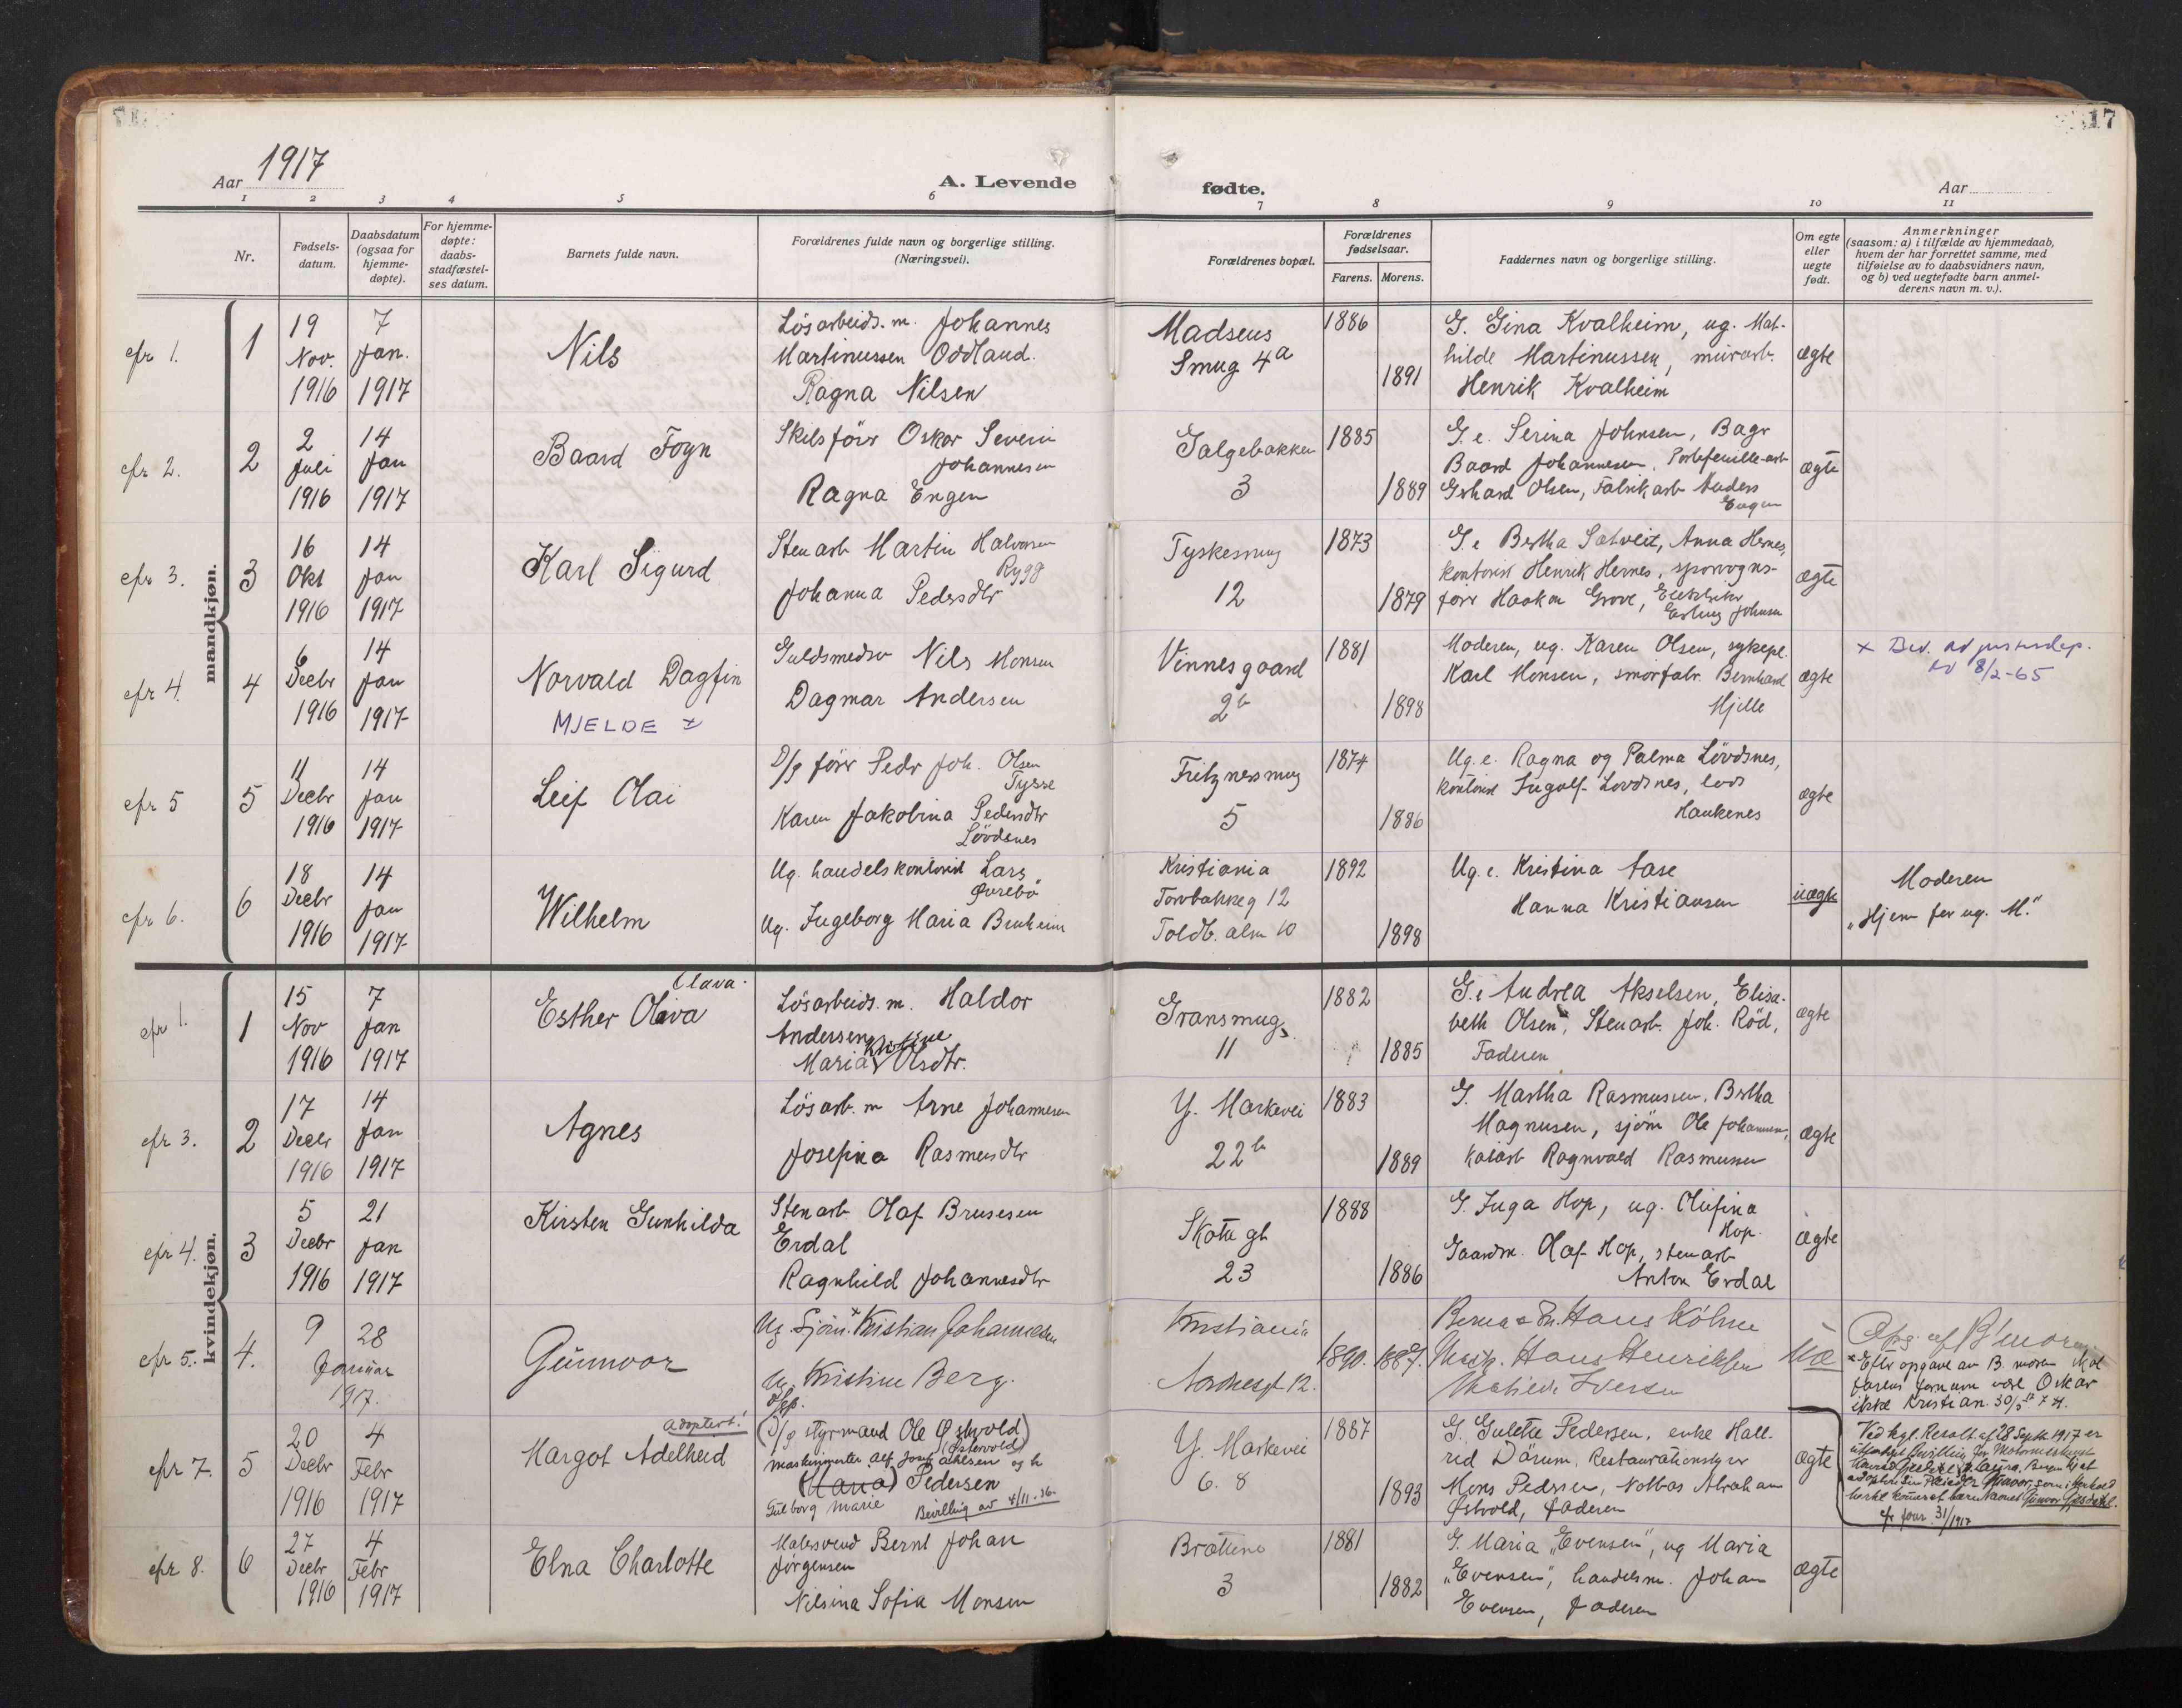 17
Aar 1917
A. Levende
fødte.
Aar
1 2 3 4 5 6 7 8 9 10 11
Nr.
Fødsels-
datum.
Daabsdatum
(ogsaa for
hjemme-
døpte).
For hjemme-
døpte:
daabs-
stadfæstel-
ses datum.
Barnets fulde navn.
Forældrenes fulde navn og borgerlige stilling.
(Næringsvei).
Forældrenes bopæl.
Forældrenes
fødselsaar.
Farens. Morens.
Faddernes navn og borgerlige stilling.
Om egte
eller
uegte
født.
Anmerkninger
(saasom: a) i tilfælde av hjemmedaab,
hvem der har forrettet samme, med
tilføielse av to daabsvidners navn,
og b) ved uegtefødte barn anmel-
derens navn m. v.).
mandkjøn.
cfr 1.
1
19
Nov.
1916
7
Jan.
1917
Nils
Løsarbeids.m. Johannes
Martinussen Oddland.
Ragna Nilsen
Madsens
Smug 4a
1886
1891
G. Gina Kvalheim, ug. Mat-
hilde Martinussen, murarb.
Henrik Kvalheim
ægte
cfr 2.
2
2
Juli
1916
14
Jan
1917
Baard Fogn
Skibsförer Oskar Severin
Johannesen
Ragna Engen
Galgebakken
3
1885
1889
G. e. Serina Johnsen, Bagr
Baard Johannesen, Portefeuille-arb
Gerhard Olsen, Fabrikarb Anders
Engen
ægte
cfr 3.
3
16
Okt
1916
14
Jan
1917
Karl Sigurd
Stenarb Martin Halvorsen
Rygg
Johanna Pedersdtr
Tyskesmug
12
1873
1879
G. e Bertha Sætveit, Anna Hernes,
kontorist Henrik Hernes, sporvogns-
förer Haakon Grove, Elektriker
Erling Johnsen
ægte
cfr 4.
4
6
Decbr
1916
14
Jan
1917
Norvald Dagfin
MJELDE x
Guldsmedsv Nils Monsen
Dagmar Andersen
Vinnesgaard
2b
1881
1898
Moderen, ug. Karen Olsen, sykepl.
Karl Monsen, smørfabr. Bernhard
Mjelle
ægte
x Bev. av justisdep.
av 8/2-65
cfr 5
5
11
Decbr
1916
14
Jan
1917
Leif Olai
D/g förer Peder Joh. Olsen
Tysse
Karen Jakobina Pedersdtr
Lövdsnes
Fritznersmug
5
1874
1886
Ug. e. Ragna og Palma Lövdsnes,
kontorist Ingolf Lovdsnes, lods
Haukenes
ægte
cfr 6.
6
18
Decbr
1916
14
Jan
1917
Wilhelm
Ug. handelskontorist Lars
Øvrebö
Ug. Ingeborg Maria Bruheim
Kristiania
Torvbakkeg 12
Toldb. alm 10
1892
1898
Ug. e. Kristina Aase
Hanna Kristiansen
uægte
Moderen
"Hjem for ug. M."
kvindekjøn.
cfr 1.
1
15
Nov
1916
7
Jan
1917
Olava.
Esther Oliva
Løsarbeids.m. Haldor
Andersen
Kristine
Maria Olsdtr.
Gransmug
11
1882
1885
G. e Andrea Akselsen, Elisa-
beth Olsen, Stenarb. Joh. Röd,
Faderen
ægte
cfr 3.
2
17
Decbr
1916
14
Jan
1917
Agnes
Løsarb. m Arne Johannesen
Josefina Rasmusdtr
Y. Markevei
22b
1883
1889
G. Martha Rasmussen, Bertha
Magnusen, sjöm Ole Johannesen,
kaiarb Ragnvald Rasmussen
ægte
cfr 4.
3
5
Decbr
1916
21
Jan
1917
Kirsten Gunhilda
Stenarb Olaf Brusesen
Erdal
Ragnhild Johannesdtr
Skoteg
23
1888
1886
G. Inga Hop, ug. Olufina
Hop.
Gaardm. Olaf Hop, stenarb
Anton Erdal
ægte
cfr 5.
4.
9
28
Januar
1917.
Gunvoor
Ug. Sjöm. x Kristian Johannesen
Ug. Kristine Berg.
Kristiania
Nordnesgt 12.
1890. 1887.
Berna &
Hans Köhne
Hans Henriksen
Mathilde Iversen
Uæ
Opg. af B'mor
x Efter opgave av B. moren skal
farens fornavn være Oskar
ikke Kristian. 30/5 17
cfr 7.
5
20
Decbr
1916
4
Febr
1917
adoptert!
Margot Adelheid
(D/g styrmand Ole Østvold)
(Østervold)
maskinmester Alf Josef Carlsen og h
(Maria) Pedersen
Gulborg Marie Bevilling av 4/11.36.
Y. Markevei
6. 8
1887
1893
G. Gulette Pedersen, enke Hall-
rid Dörum, Restaurationstyrer
Mons Pedersen, Notbas Abraham
Østvold, Faderen
ægte
Ved kgl. Resolt af 28 Septb. 1917 er
Gunvor Gjesdahl.
cfr jour. 31/1917
cfr 8.
6
27
Decbr
1916
4
Febr
1917
Elna Charlotte
Malersvend Bernt Johan
Jørgensen
Nilsina Sofia Monsen
Brattene
3
1881
1882
G. Maria "Evensen", ug Maria
"Evensen", handelsm. Johan
Evensen, Faderen
ægte